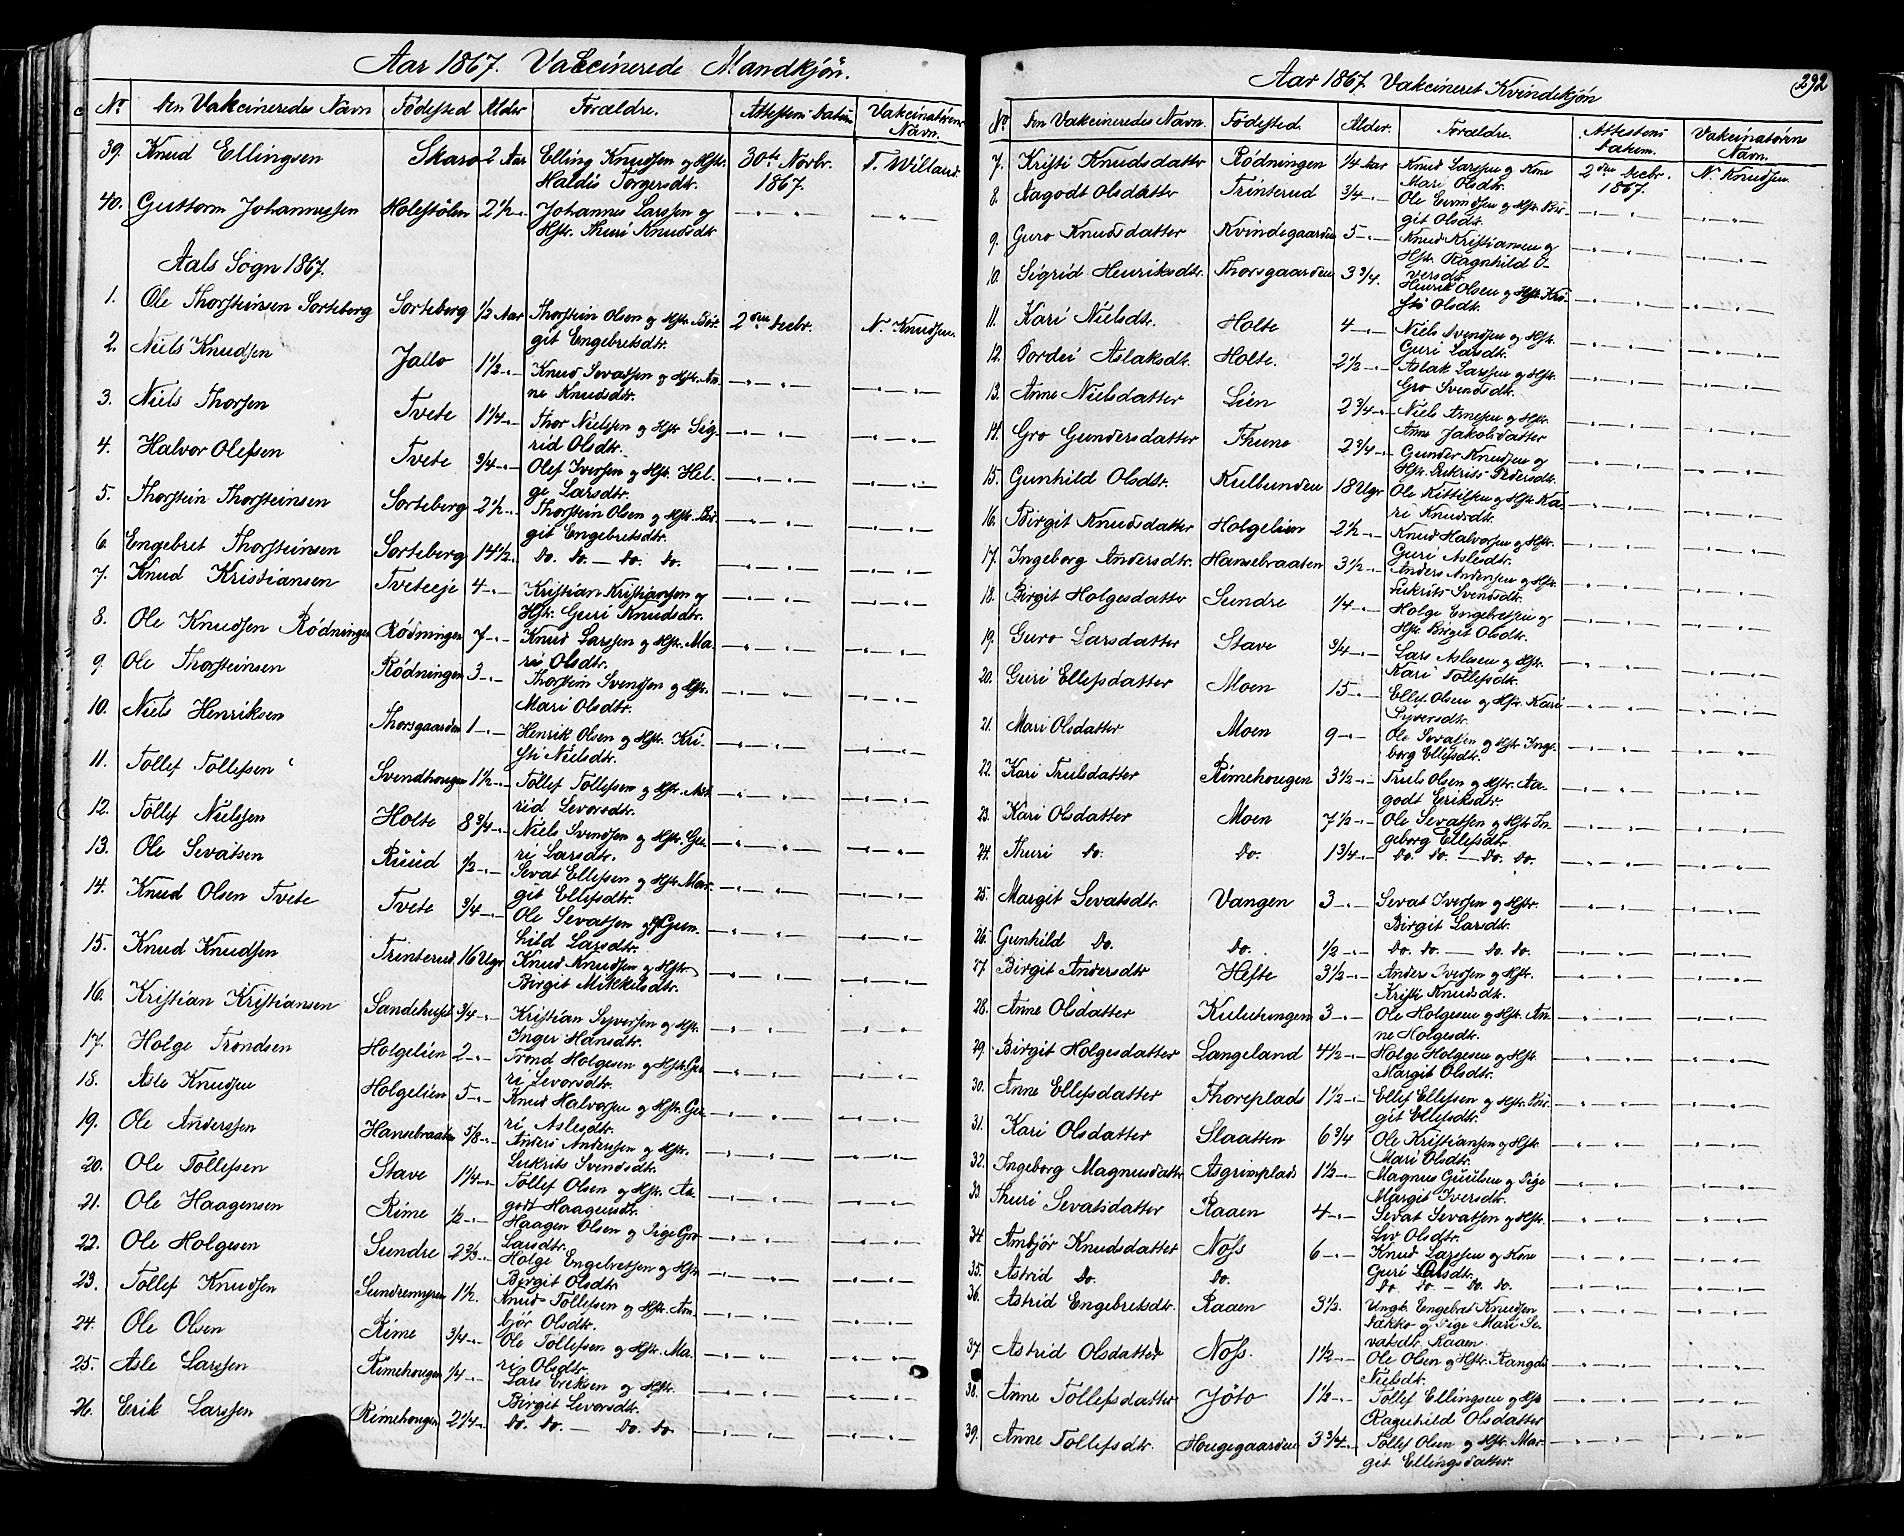 Aar 1867. Vakcinerede Mandkjøn.
No Den Vakcineredes Navn Fødested Alder Forældre. Attestens Datum Vakcinatørens Navn.
39. Knud Ellingsen Skaro 2 Aar Elling Knudsen og Hstr. 30te Novbr. T. Villand
Haldis Torgersdtr. 1867.
40. Guttorm Johannessen Holestølen 2 1/2 -"- Johannes Larssen og -"- -"-
Hstr. Thuri Knudsdtr
Aals Sogn 1867.
1. Ole Thorsteinsen Sorteberg Sorteberg 1/3 Aar Thorstein Olsen og Hstr. Bir- 2den Decbr. N. Knudsen.
git Engebretsdtr.
2. Niels Knudsen Jallo 1 1/2 -"- Knud Sevatsen og Hstr. An- -"- -"-
ne Knudsdtr.
3. Niels Thorsen Tvete 1 1/4 -"- Thor Nielsen og Hstr. Sig- -"- -"-
rid Olsdtr.
4. Halvor Olefsen Tvete 3/4 -"- Olef Iversen og Hstr. Hel- -"- -"-
ge Larsdtr.
5. Thorstein Thorsteinsen Sorteberg 2 1/2 -"- Thorstein Olsen og Hstr. Bir- -"- -"-
git Engebretsdtr.
6. Engebret Thorsteinsen Sorteberg 14 1/2 -"- Do. Do. — Do. Do. -"- -"-
7. Knud Kristiansen Tveteeje 4 -"- Kristian Kristiansen og -"- -"-
Hstr. Guri Knudsdtr.
8. Ole Knudsen Rødningen Rødningen 7 -"- Knud Larssen og Hstr. Ma- -"- -"-
ri Olsdtr.
9. Ole Thorsteinsen Rødningen 3 -"- Thorstein Svendsen og Hstr. -"- -"-
Mari Olsdtr.
10. Niels Henriksen Thorsgaarden 1 -"- Henrik Olsen og Hstr. Kri- -"- -"-
sti Nielsdtr.
11. Tollef Tollefsen Svendhougen 1 1/2 -"- Tollef Tollefsen og Hstr. Ast- -"- -"-
rid Levorsdtr.
12. Tollef Nielsen Holte 8 3/4 -"- Niels Svendsen og Hstr. Gu- -"- -"-
ri Larsdtr.
13. Ole Sevatsen Ruud 1/2 -"- Sevat Ellefsen og Hstr. Mar- -"- -"-
git Ellefsdtr.
14. Knud Olsen Tvete Tvete 3/4 -"- Ole Sevatsen og Gun- -"- -"-
hild Larsdtr.
15. Knud Knudsen Trinterud 16 Ugr Knud Knudsen og Hstr -"- -"-
Birgit Mikkelsdtr.
16. Kristian Kristiansen Sandehuset 3/4 -"- Kristian Syversen og Hstr. -"- -"-
Inger Hansdtr.
17. Holge Trondsen Holgelien 2 -"- Trond Holgesen og Hstr. Gu- -"- -"-
ri Levorsdtr.
18. Asle Knudsen Holgelien 5 -"- Knud Halvorsen og Hstr. Gu- -"- -"-
ri Aslesdtr.
19. Ole Anderssen Hansebraaten 5/8 -"- Anders Anderssen og Hstr. -"- -"-
Sukrits Svendsdtr.
20. Ole Tollefsen Stave 1 1/4 -"- Tollef Olsen og Hstr. Aa- -"- -"-
godt Haagensdtr.
21. Ole Haagensen Rime 1/2 -"- Haagen Olsen og Pige Gro -"- -"-
Larsdtr.
22. Ole Holgesen Sundre 2 2/3 -"- Holge Engebretsen og Hstr -"- -"-
Birgit Olsdtr.
23. Tollef Knudsen Sundremyren 1 1/2. Knud Tollefsen og Hstr. Am- -"- -"-
bjør Olsdtr.
24. Ole Olsen Rime 3/4 -"- Ole Tollefsen og Hstr. Ma- -"- -"-
ri Olsdtr.
25. Asle Larssen Rimehougen 1/4 -"- Lars Eriksen og Hstr. -"- -"-
Birgit Levorsdtr.
26. Erik Larssen Rimehougen 2 1/4 -"- Do. Do. — Do. Do -"- -"-
Aar 1867. Vakcineret Kvindekjøn 292
No Den Vakcineredes Navn. Fødested. Alder. Forældre. Attestens Datum. Vakcinatørens Navn.
7. Kristi Knudsdatter Rødningen 1/4 Aar Knud Larssen og Kone 2den Decbr. N. Knudsen.
Mari Olsdtr. 1867.
8. Aagodt Olsdatter Trinterud 3/4 -"- Ole og Hstr. Bir- -"- -"-
git Olsdtr.
9. Guro Knudsdatter Kvindegaarden 5 -"- Knud Kristiansen og -"- -"-
Hstr. Ragnhild I-
versdtr.
10. Sigrid Henriksdtr. Thorsgaarden 3 3/4. Henrik Olsen og Hstr. Kri- -"- -"-
sti Olsdtr.
11. Kari Nielsdtr. Holte 4 -"- Niels Svendsen og Hstr. -"- -"-
Guri Larsdtr.
12. Dordei Aslaksdtr. Holte. 2 1/2 -"- Aslak Larssen og Hstr. -"- -"-
Gro Svendsdtr.
13. Anne Nielsdatter Lien 2 3/4 -"- Niels Arnesen og Hstr. -"- -"-
Anne Jakobsdatter
14. Gro Gundersdatter Thune 2 3/4 -"- Gunder Knudsen og -"- -"-
Hstr. Sukrits Pedersdtr.
15. Gunhild Olsdtr. Kulbunden 18 Ugr Ole Kittilsen og Hstr. Ka- -"- -"-
ri Knudsdtr.
16. Birgit Knudsdatter Holgelien 2 1/2 -"- Knud Halvorsen og Hstr. -"- -"-
Guri Aslesdtr.
17. Ingeborg Andersdtr. Hansebraaten 3 1/2 -"- Anders Andersen og Hstr. -"- -"-
Sukrits Svendsdtr.
18. Birgit Holgesdatter Sundre 1/4 -"- Holge Engebretsen og -"- -"-
Hstr. Birgit Olsdtr.
19. Guro Larsdatter Stave 3/4 -"- Lars Aslesen og Hstr. -"- -"-
Kari Tollefsdtr.
20. Guri Ellefsdatter Moen 15 -"- Ellef Olsen og Hstr. Kari -"- -"-
Syversdtr.
21. Mari Olsdatter Moen 9 -"- Ole Sevatsen og Hstr Inge- -"- -"-
borg Ellefsdtr.
22. Kari Trulsdatter Rimehougen 3 1/2 -"- Truls Olsen og Hstr. Aa- -"- -"-
godt Eriksdtr.
23. Kari Olsdatter Moen 7 1/2 -"- Ole Sevatsen og Hstr. In- -"- -"-
geborg Ellefsdtr.
24. Thuri Do. Do. 1 3/4 -"- Do. Do. — Do. Do. -"- -"-
25. Margit Sevatsdtr. Vangen 3 -"- Sevat Iversen og Hstr. -"- -"-
Birgit Larsdtr.
26. Gunhild Do. Do. 1/2 -"- Do. Do. — Do. Do. -"- -"-
27. Birgit Andersdtr Hefte 3 1/2 -"- Anders Iversen og Hstr. -"- -"-
Kristi Knudsdtr.
28. Anne Olsdatter Kuluhougen 3 -"- Ole Holgesen og Hstr. An- -"- -"-
ne Holgesdtr.
29. Birgit Holgesdatter Langeland 4 1/2 -"- Holge Holgesen og Hstr. -"- -"-
Margit Olsdtr.
30. Anne Ellefsdatter Thoreplads 1 1/2 -"- Ellef Ellefsen og Hstr. Bir- -"- -"-
git Ellefsdtr.
31. Kari Olsdatter Slaatten 6 3/4 Ole Kristiansen og Hstr. -"- -"-
Mari Olsdtr.
32. Ingeborg Magnusdatter Asgrimplads 1 1/2 -"- Magnus Guulsen og Pige -"- -"-
Margit Iversdtr.
33. Thuri Sevatsdatter Raaen 4 -"- Sevat Sevatsen og Hstr. -"- -"-
Liv Olsdtr.
34. Ambjør Knudsdatter Noss 6 -"- Knud Larssen og Kone -"- -"-
Guri Olsdtr.
35. Astrid Do. Do. Do. Do. — Do. Do. -"- -"-
36. Astrid Engebretsdtr. Raaen 3 1/2. Ungk. Engebret Knudsen -"- -"-
Dækko og Pige Mari Se-
vatsdtr Raaen.
37. Astrid Olsdatter Noss. 1 1/2 -"- Ole Olsen og Hstr. Rangdi -"- -"-
Nielsdtr.
38. Anne Tollefsdatter Jøto 1 1/2 -"- Tollef Ellingsen og Hstr -"- -"-
Ragnhild Olsdatter
39. Anne Tollefsdtr. Hougegaarden 3 3/4 -"- Tollef Olsen og Hstr. Mar- -"- -"-
git Ellingsdatter.